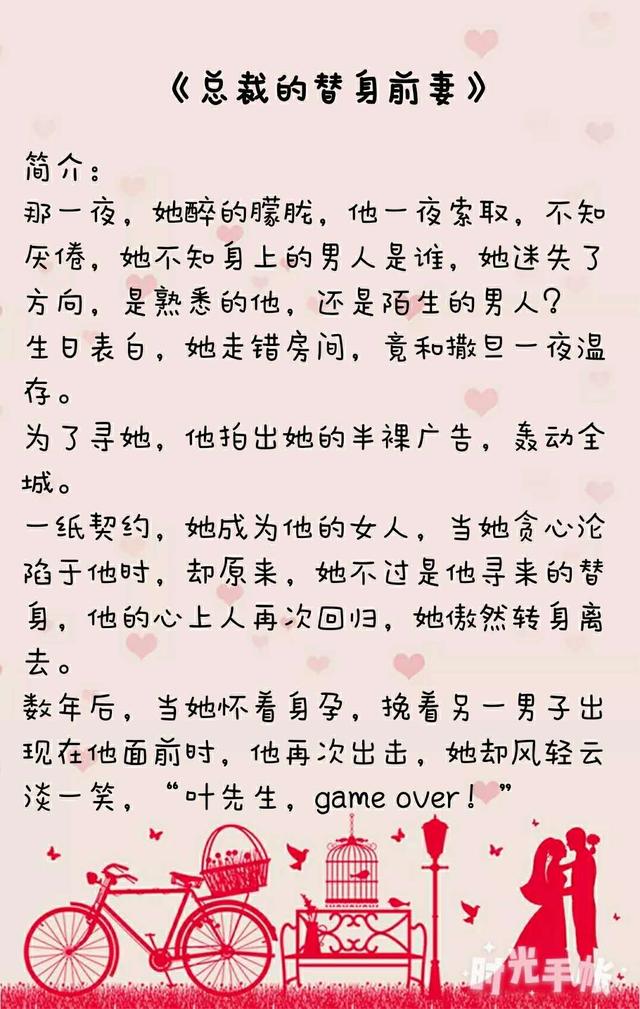 《总裁的替身前妻》
简介：
那一夜，她醉的朦胧，他一夜索取，不知
厌倦，她不知身上的男人是谁，她迷失了
方向，是熟悉的他，还是陌生的男人？
生日表白，她走错房间，竟和撒旦一夜温
存。
为了寻她，他拍出她的半裸广告，轰动全
城。
一纸契约，她成为他的女人，当她贪心沦
陷于他时，却原来，她不过是他寻来的替
身，他的心上人再次回归，她傲然转身离
去。
数年后，当她怀着身孕，挽着另一男子出
现在他面前时，他再次出击，她却风轻云
淡一笑，“叶先生，game over！”
时光手帐